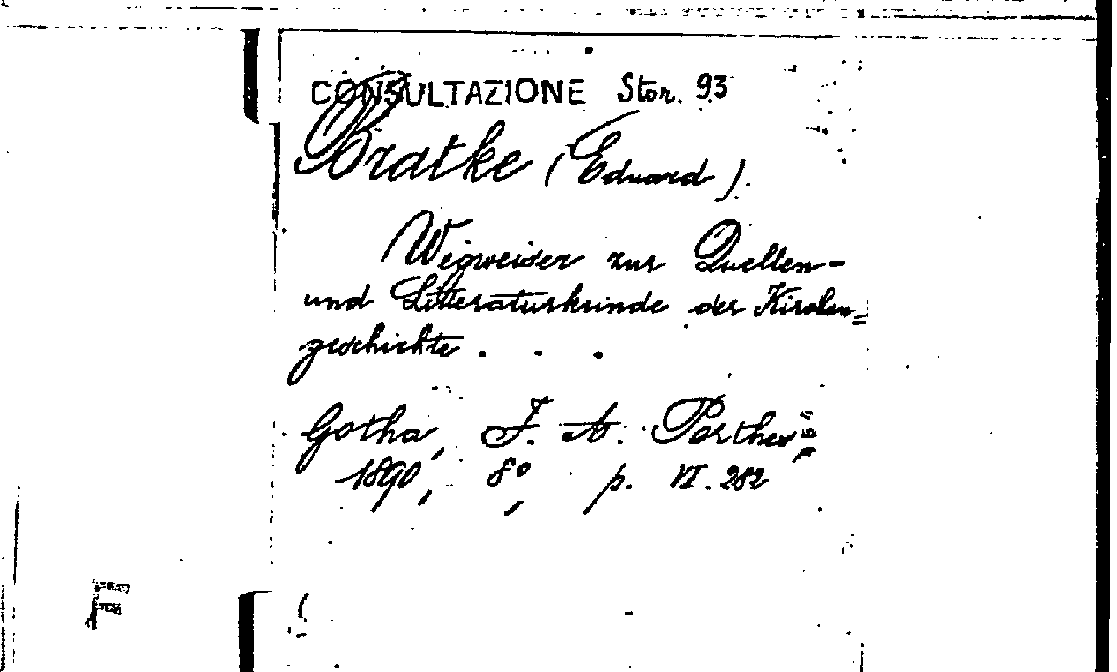 CONSULTAZIONE Stor. 93
Bratke (Eduard).
Wegweiser zur Quellen-
und Litteraturkunde der Kirchen=
geschichte . . .
Gotha, F. A. Perthes,
1890, 8°, p. VI. 282
F